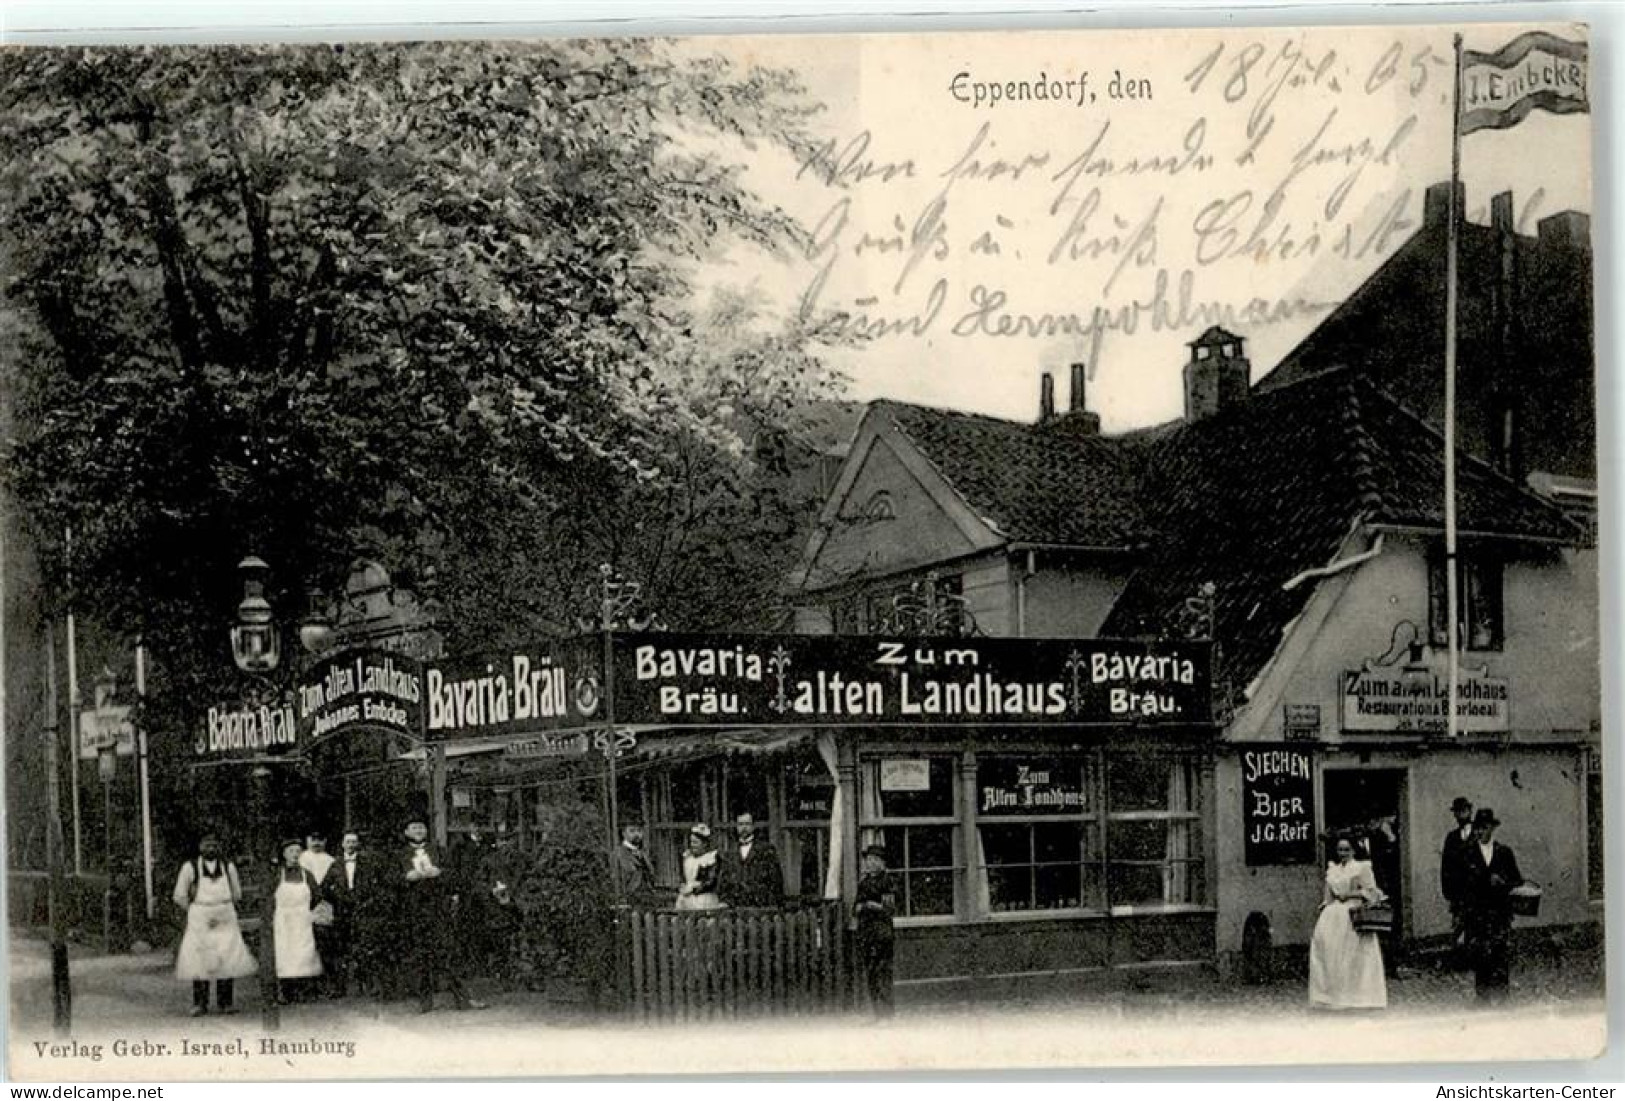 Eppendorf, den 18 Juli 05.
J. Embcke
Von hier sendet herzl
Gruß u. Kuß Christel
und Hermpohlmann
Bavaria-Bräu
Zum alten Landhaus
Johannes Embcke
Bavaria-Bräu
Bavaria-
Bräu.
Zum
alten Landhaus
Bavaria
Bräu.
Zum alten Landhaus
Restaurations & Bierlocal
Joh. Embcke
Zum
Alten Landhaus
SIECHEN
BIER
J.G. Reif
Verlag Gebr. Israel, Hamburg
Ansichtskarten-Center